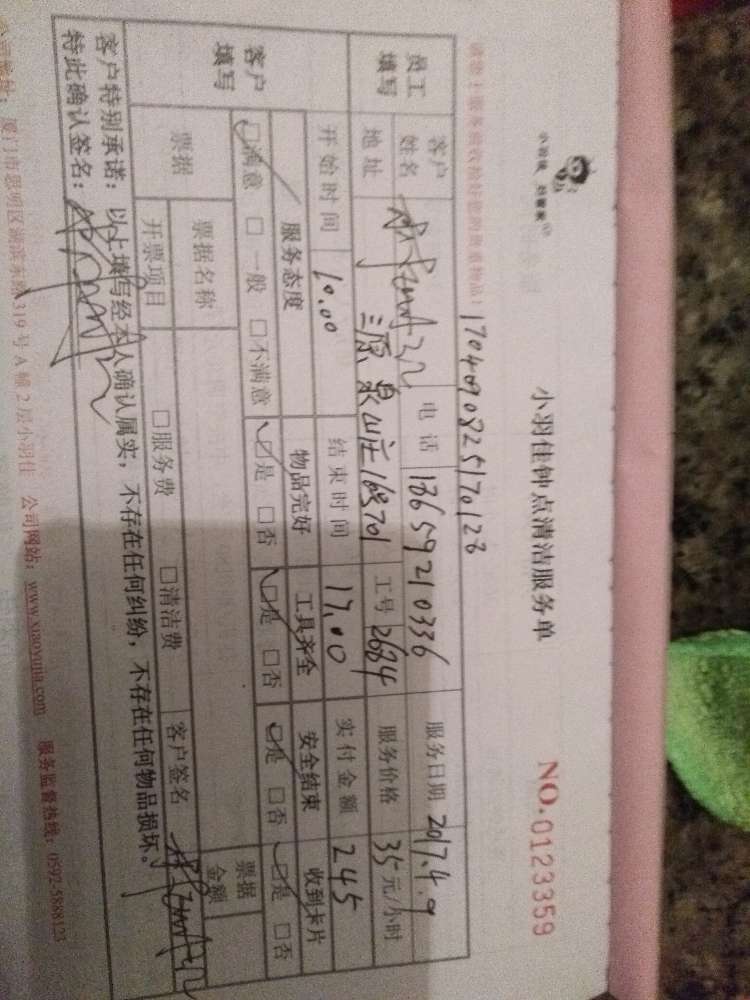 小羽佳钟点清洁服务单
NO.0123359
1704090825170128
员工填写 客户姓名 电话 13659210336 服务日期 2017.4.9
地址 三原泉山庄16号701 工号 2684 服务价格 35元/小时
开始时间 10.00 结束时间 17.00 实付金额 245
客户填写 服务态度 物品完好 工具齐全 安全结束 收到卡片
☑满意 □一般 □不满意 ☑是 □否 ☑是 □否 ☑是 □否 ☑是 □否
票据 票据名称 票据金额
开票项目 □服务费 □清洁费 客户签名
客户特别承诺：以上填写经本人确认属实，不存在任何纠纷，不存在任何物品损坏。
特此确认签名：
厦门市思明区湖滨东路319号A幢2层小羽佳 公司网站：www.xiaoyujia.com 服务监督热线：0592-5888123